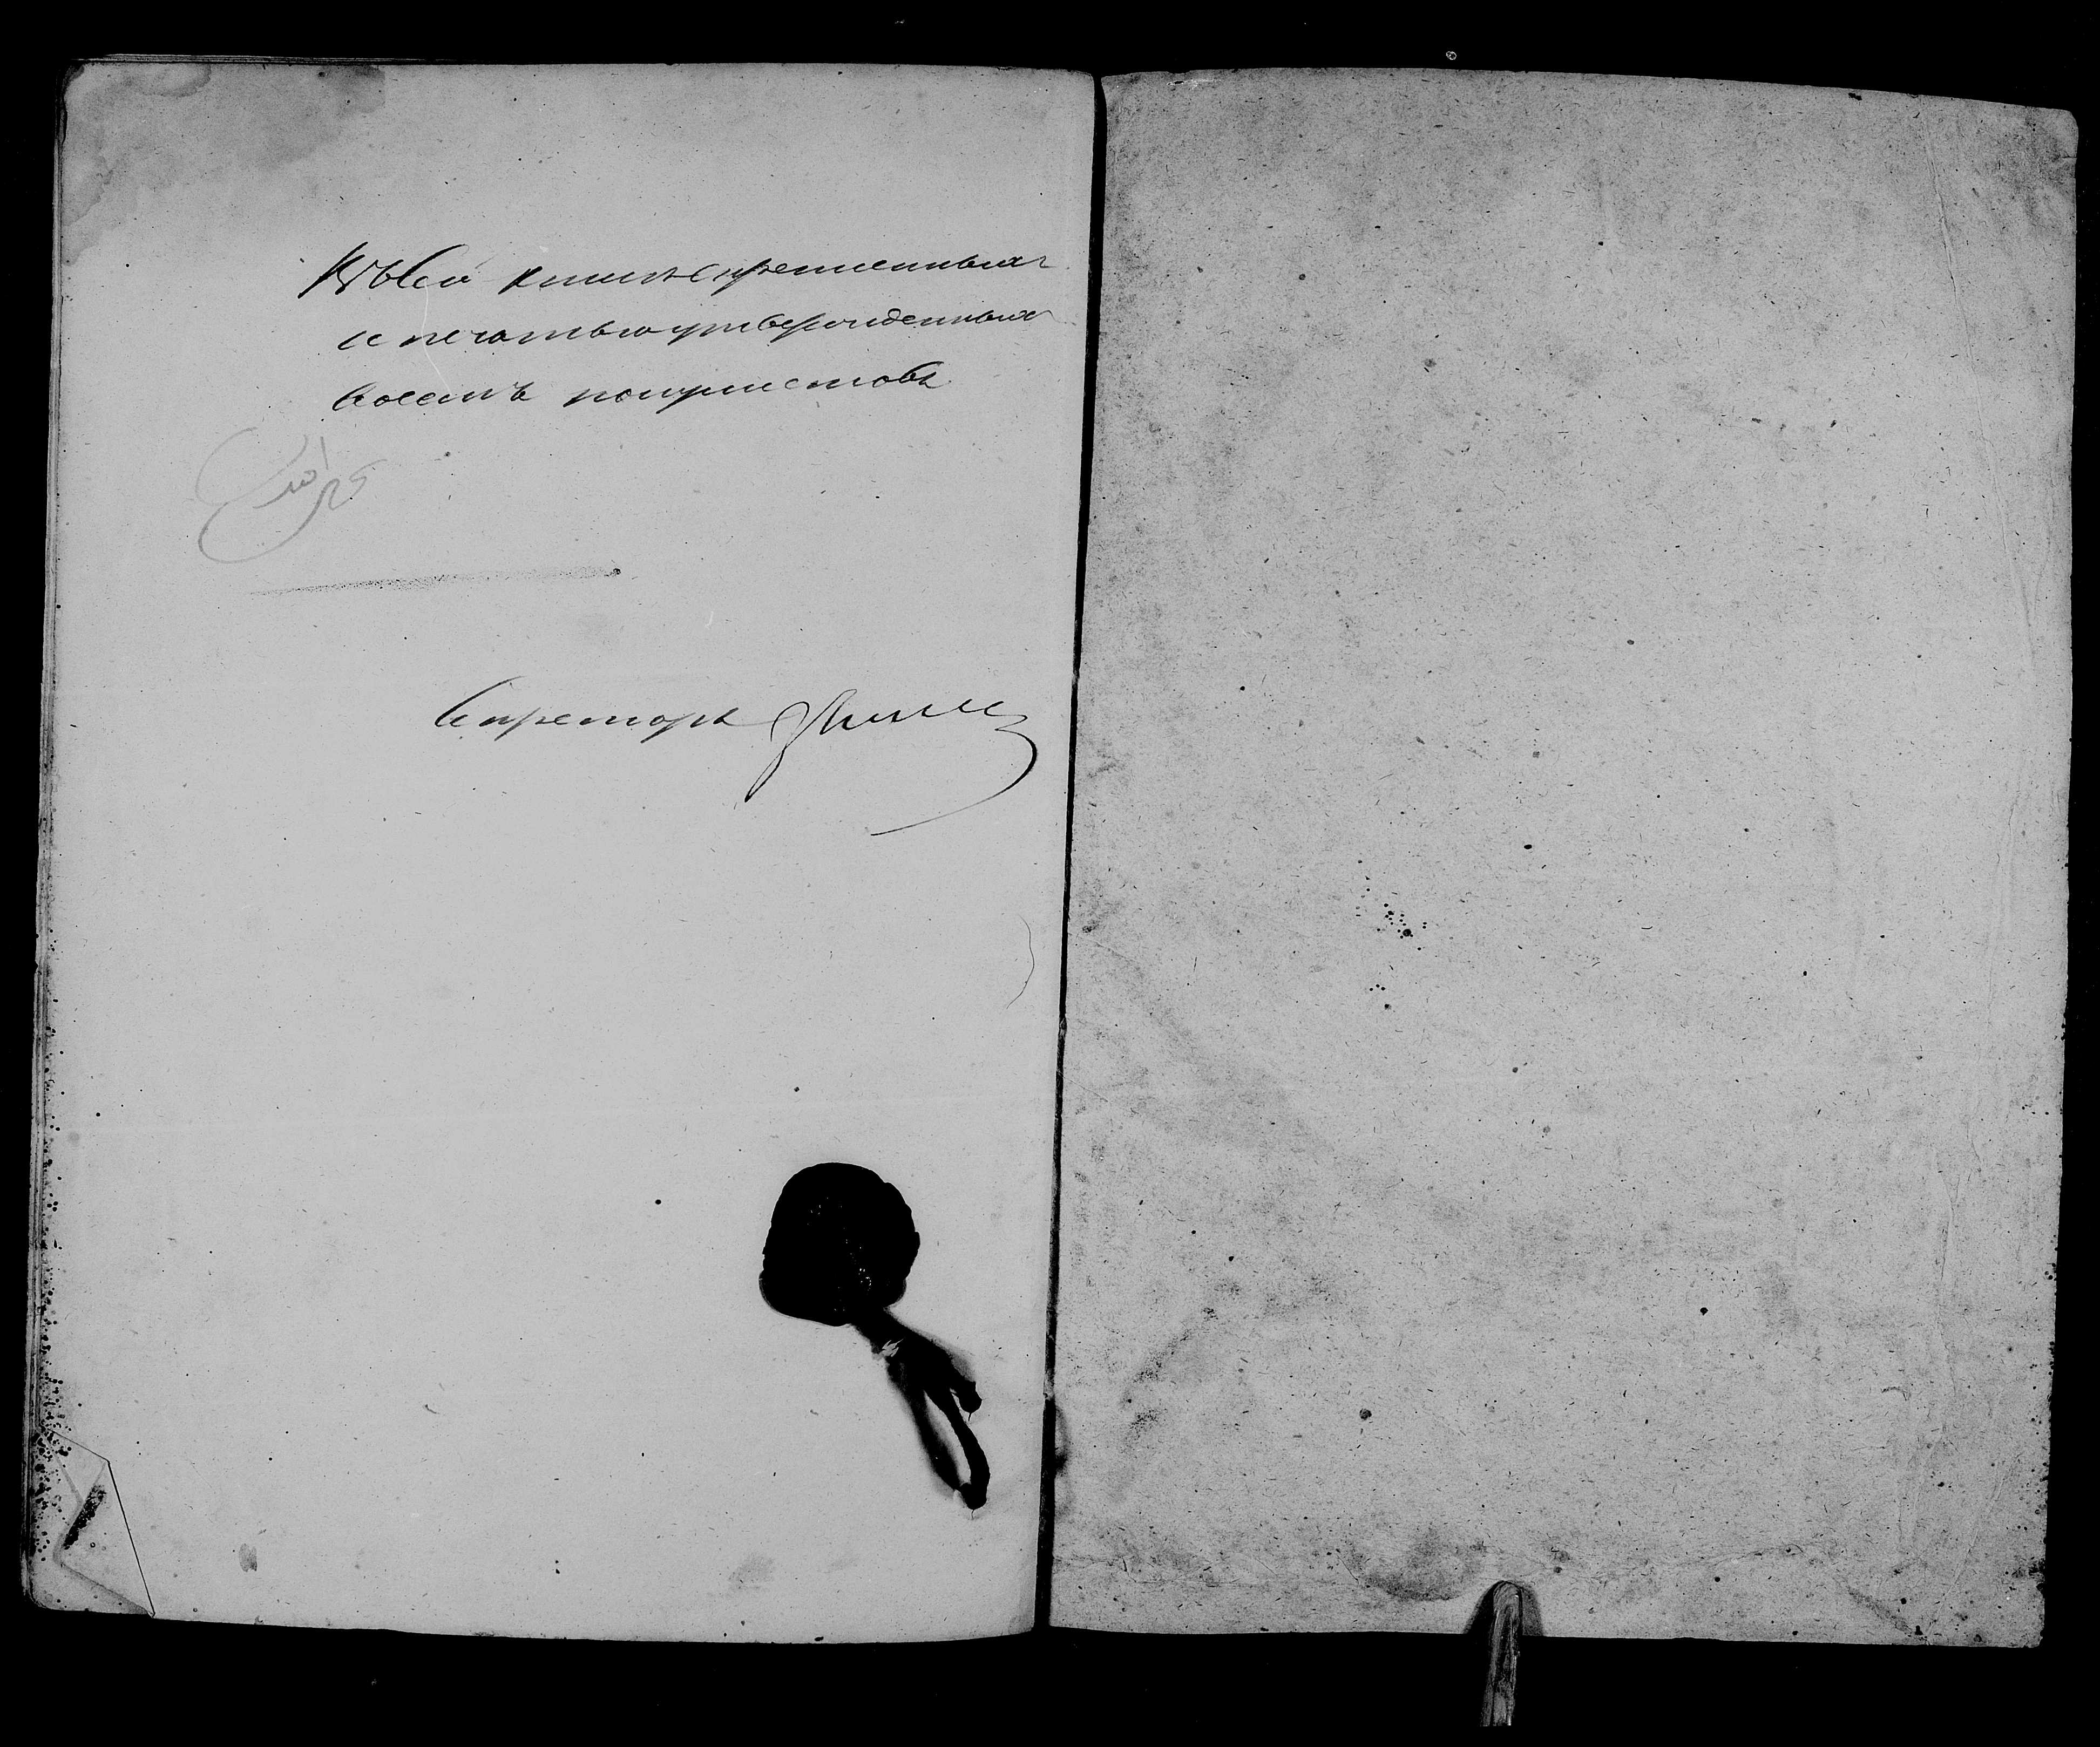 Въ сей книге скрепленныхъ
и печатью утвержденныхъ
восемь полулистовъ
Секретарь